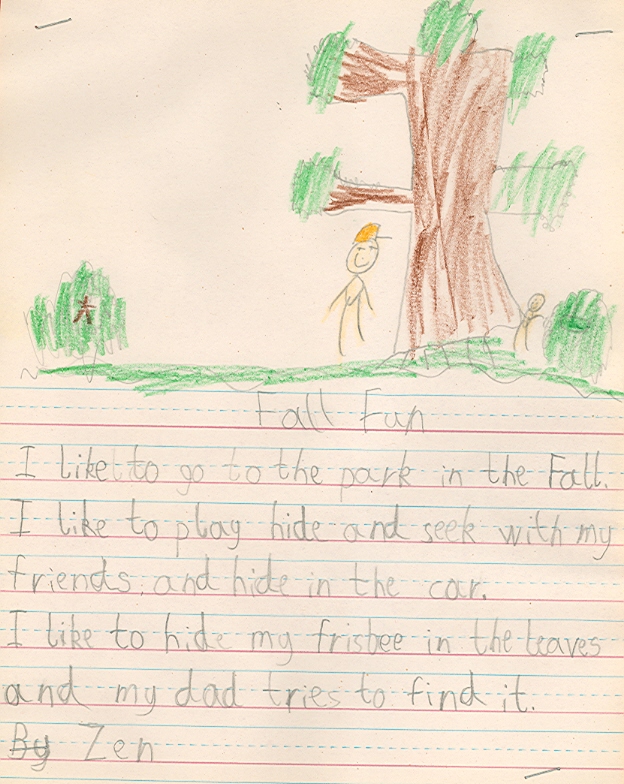 Fall Fun
I like to go to the park in the Fall.
I like to play hide and seek with my
friends, and hide in the car.
I like to hide my frisbee in the leaves
and my dad tries to find it.
By Zen